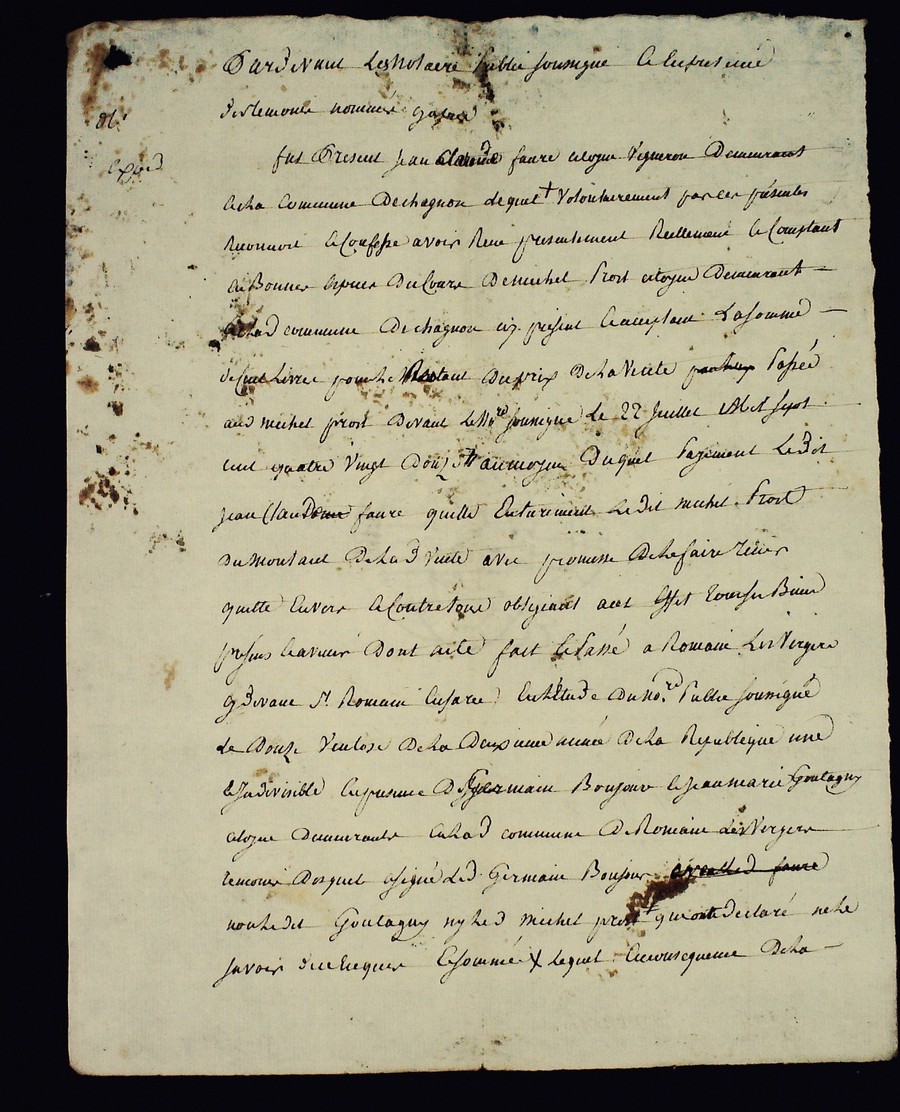 Pardevant Les Notaire Public soussigné et En presence
des temoins nommés après
exped
fut Present jean Claude faure citoyen vigneron Demeurant
en La Commune De chagnon Lequel + Volontairement par ces présentes
Reconnoit et Confesse avoir Recu presentement Reellement et Comptant
en Bonnes Especes Du Cours De michel Prost citoyen Demeurant
en lad commune De chagnon cy present et acceptant La somme
de Cent Livres pour le Restant Du prix De La Vente Passée
aud michel prost Devant Le No.re soussigné Le 22 juillet Mil Sept
cent quatre Vingt Douze + au moyen Duquel Payement Ledit
jean Claude faure quitte Entierement Ledit michel Prost
Du Montant De Lad Vente avec promesse De Le faire Tenir
quitte Envers et Contre tous obligeant a cet Effet tous ses Biens
presens et avenir Dont acte fait et Passé a Romain Les Vergers
cy devant St. Romain en jarez En L'Etude Du No.re Public soussigné
Le Douze Ventose De La Deuxieme année De La Republique une
et Indivisible En presence De Germain Bonjour et jean marie Goutagny
citoyens Demeurants en Lad commune De Romain Les Vergers
temoins Desquels a signé Led. Germain Bonjour
non Ledit Goutagny ny Led michel prost + qui ont declaré ne le
savoir de ce Enquis et sommés X Lequel En consequence De La